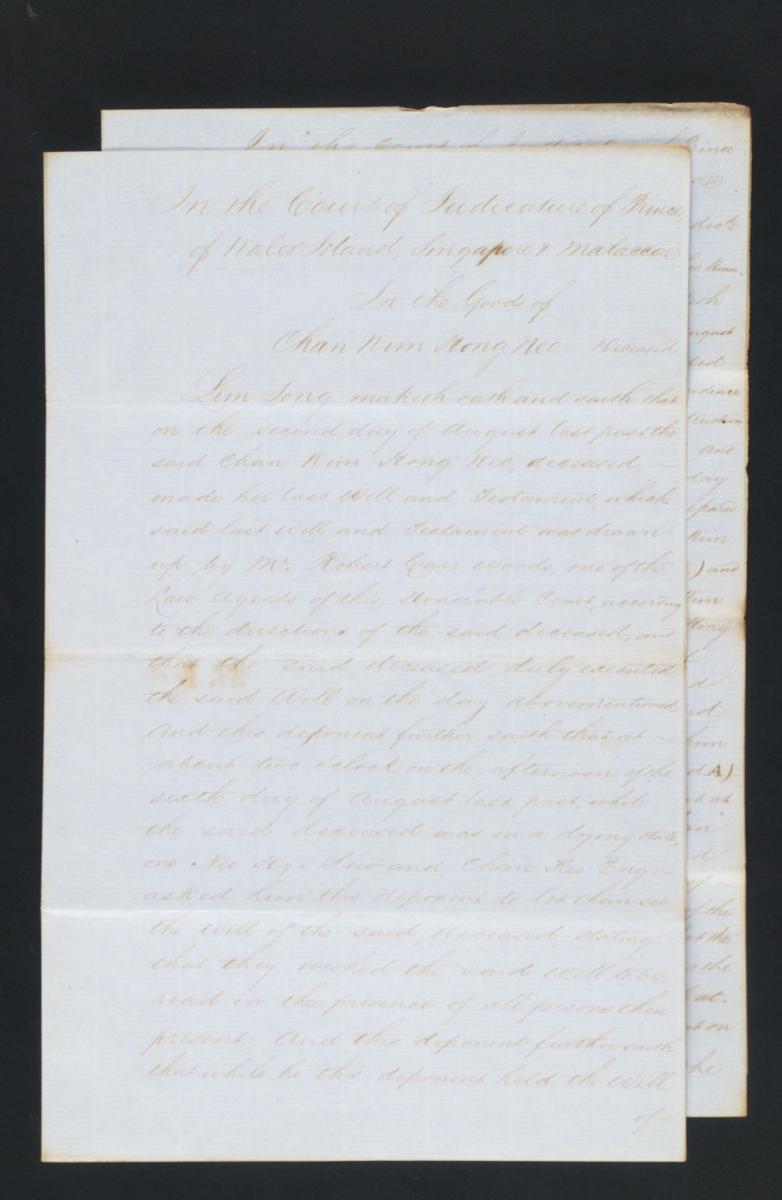 In the Court of Judicature of Prince,
of Wales' Island, Singapore & Malacca
In the Goods of
Chan Kim Hong Neo Deceased
Lim Song maketh oath and saith that
on the second day of August last past the
said Chan Kim Hong Neo, deceased, ~
made her last Will and Testament, which
said last Will and Testament was drawn
up by Mr. Robert Carr Woods, one of the
Law Agents of this Honorable Court, according
to the directions of the said deceased, and
that the said deceased duly executed
the said Will on the day abovementioned
And this deponent further saith that at ~
about two o'clock on the afternoon of the
sixth day of August last past, while
the said deceased was in a dying state,
one Neo Hye and Chan Kee
asked him this deponent to let them see
the Will of the said deceased, stating
that they wished the said Will to be
read in the presence of all persons then
present. And this deponent further saith
that while he this deponent held the Will
of
In the Court of
ince
August
and
day
Kim
) and
Tim
Hong
A)
of the
the
at on
he